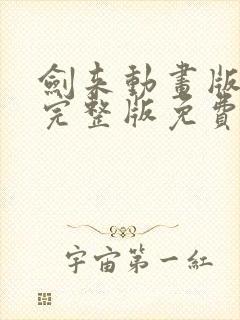 劍来動畫版
完整版免費
宇宙第一紅